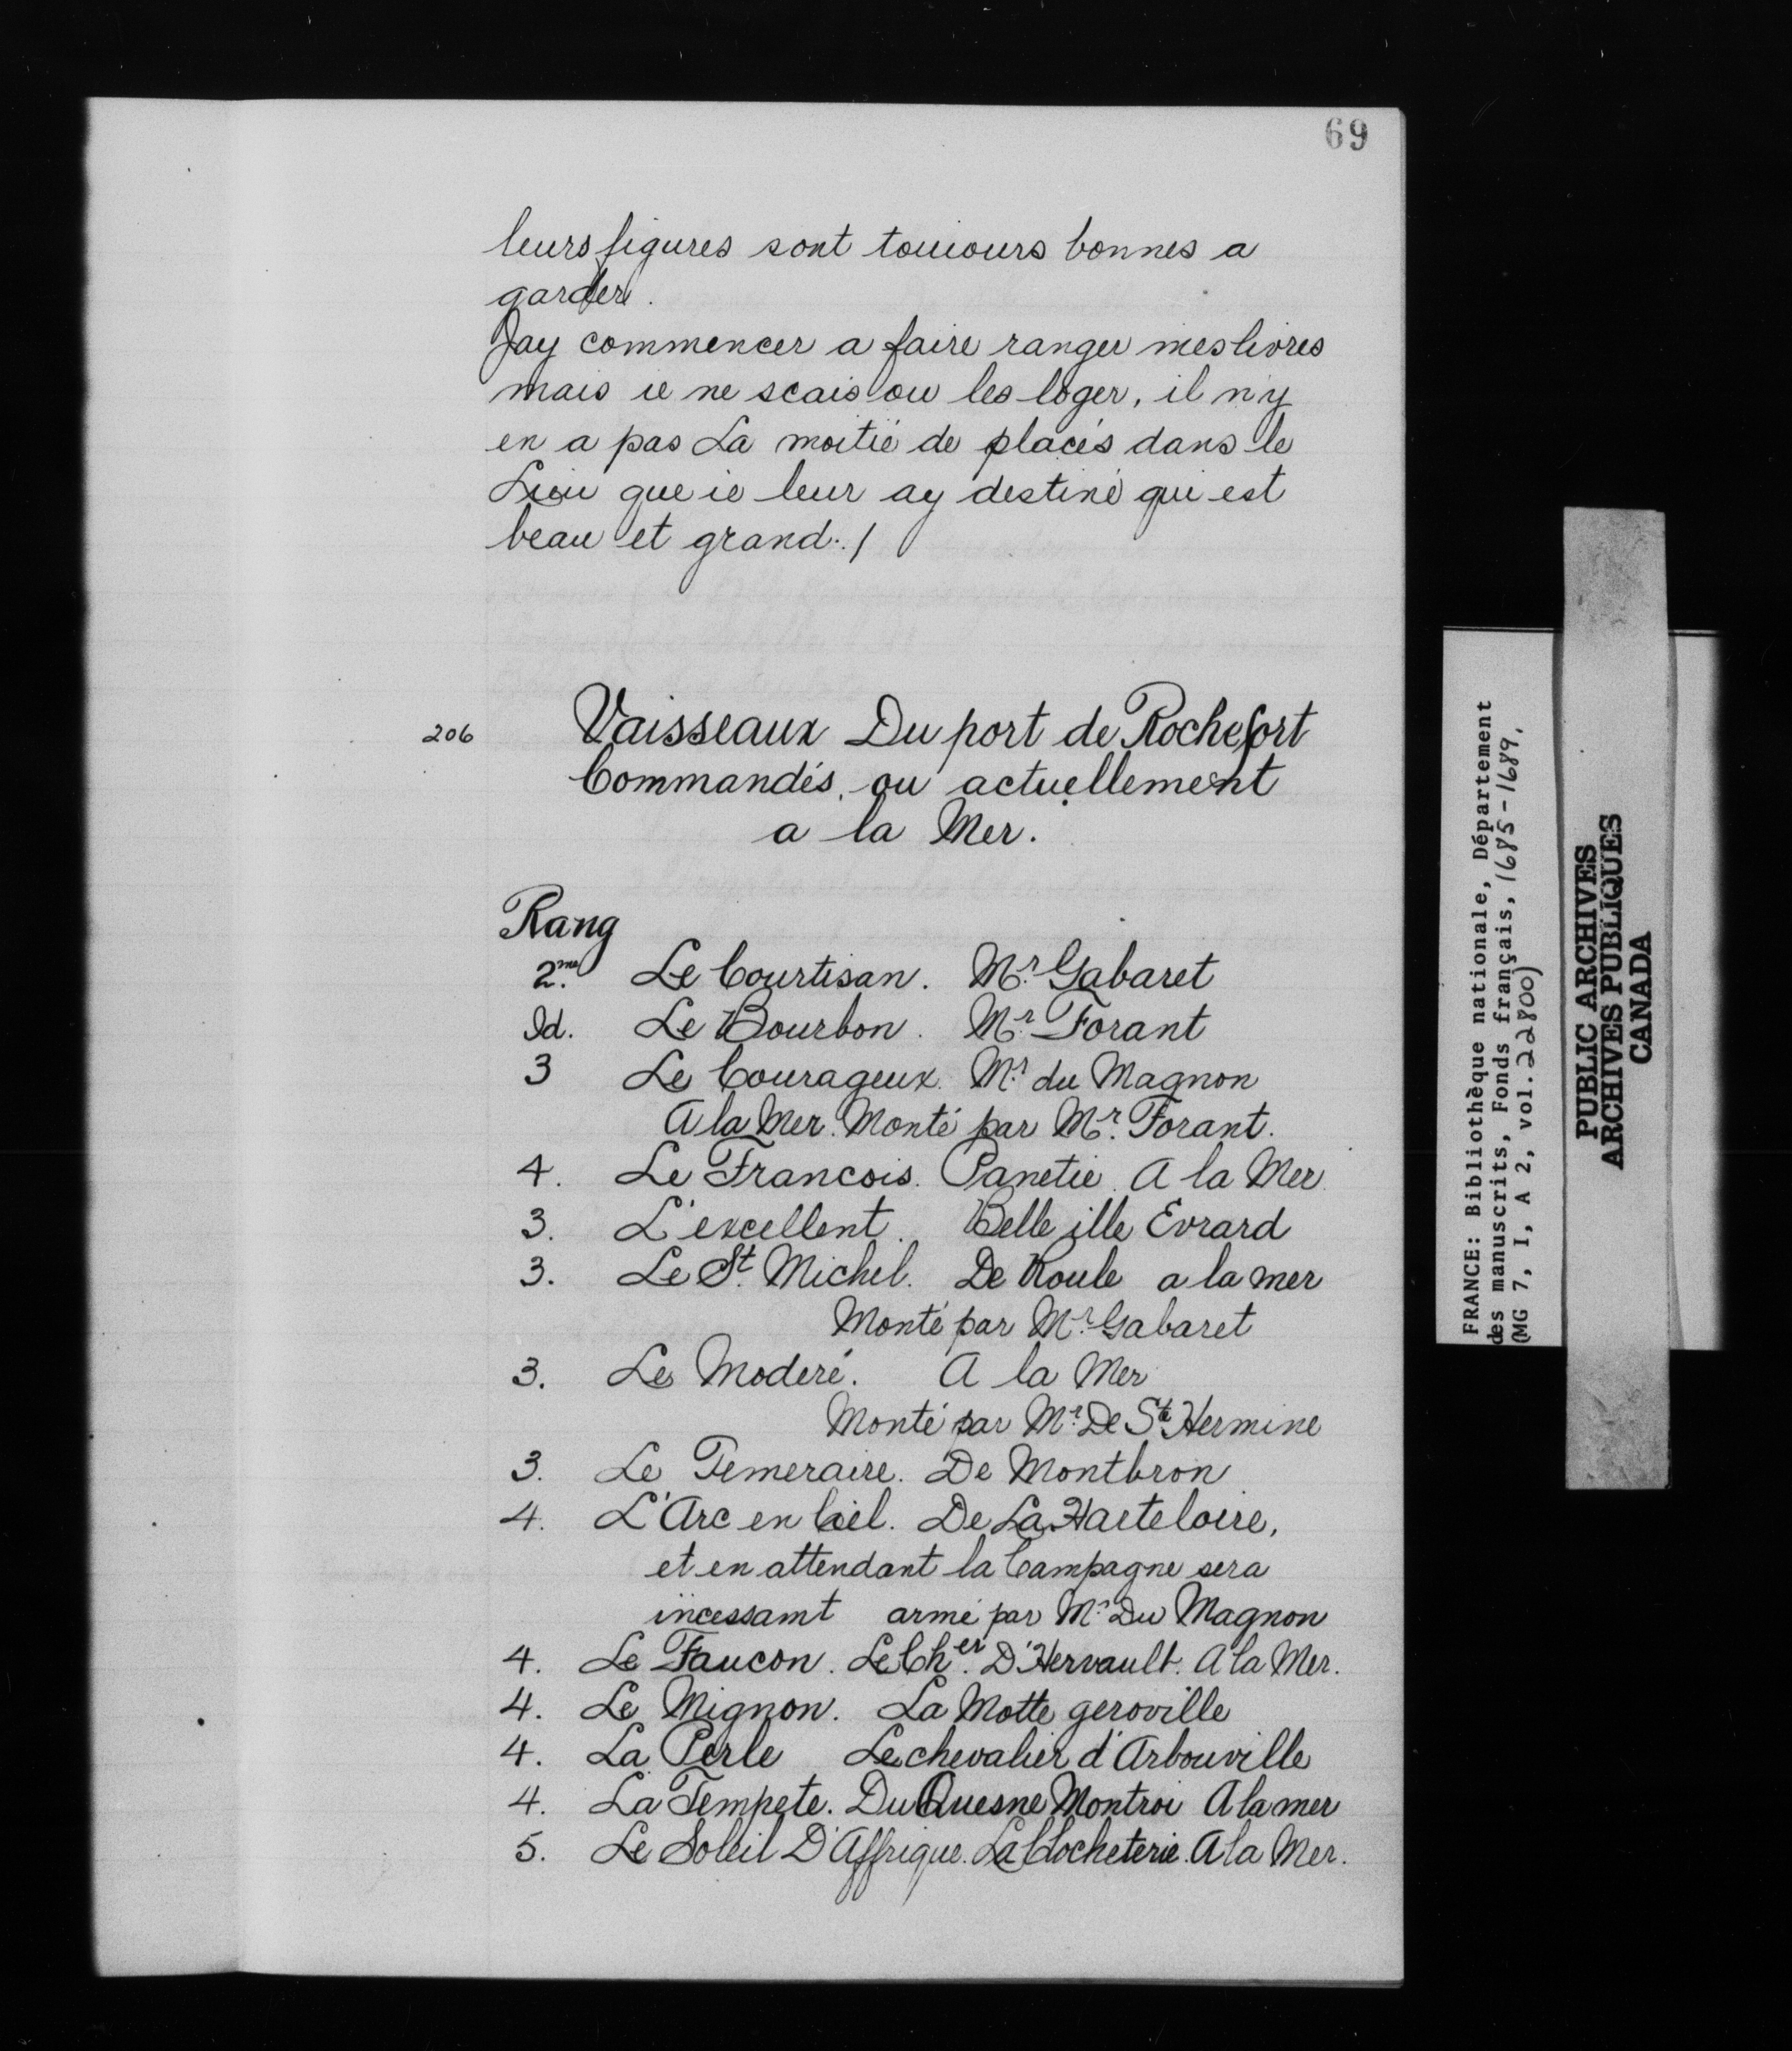 69
leurs figures sont touiours bonnes a
garder.
Jay commencer a faire ranger mes livres
mais ie ne scais ou les loger, il n'y
en a pas La moitié de placés dans le
Lieu que ie leur ay destiné qui est
beau et grand./
206
Vaisseaux Du port de Rochefort
Commandés, ou actuellement
a la Mer.
Rang
2.me Le Courtisan. Mr. Gabaret
Id. Le Bourbon. Mr. Forant
3 Le Courageux. Mr. du Magnon
A la Mer. Monté par Mr. Forant.
4. Le Francois. Panetié. A la Mer.
3. L'excellent. Belle ille Evrard
3. Le St. Michel. De Roule a la mer
Monté par Mr. Gabaret
3. Le Moderé. A la Mer
Monté par Mr. De Ste Hermine
3. Le Temeraire. De Montbron
4. L'Arc en Ciel. De La Harteloire,
et en attendant la Campagne sera
incessamt armé par Mr. Du Magnon
4. Le Faucon. Le Cher. D'Hervault. A la Mer.
4. Le Mignon. La Motte geroville
4. La Perle Le chevalier d'Arbouville
4. La Tempete. Du Quesne Montroi A la mer
5. Le Soleil D'Affrique. La Clocheterie. A la Mer.
FRANCE: Bibliothèque nationale, Département
des manuscrits, Fonds français, 1685-1689.
(MG 7, I, A 2, vol. 22800)
PUBLIC ARCHIVES
ARCHIVES PUBLIQUES
CANADA